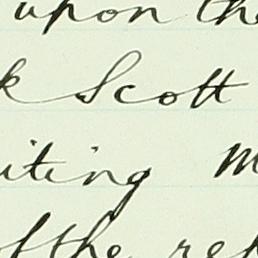 upon the
k Scott
iting M
of the rep